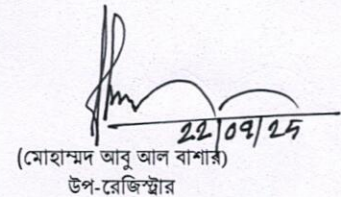 22/09/25
(মোহাম্মদ আবু আল বাশার)
উপ-রেজিস্ট্রার